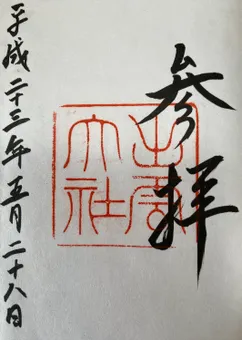 参拝
出雲大社
平成二十三年五月二十八日